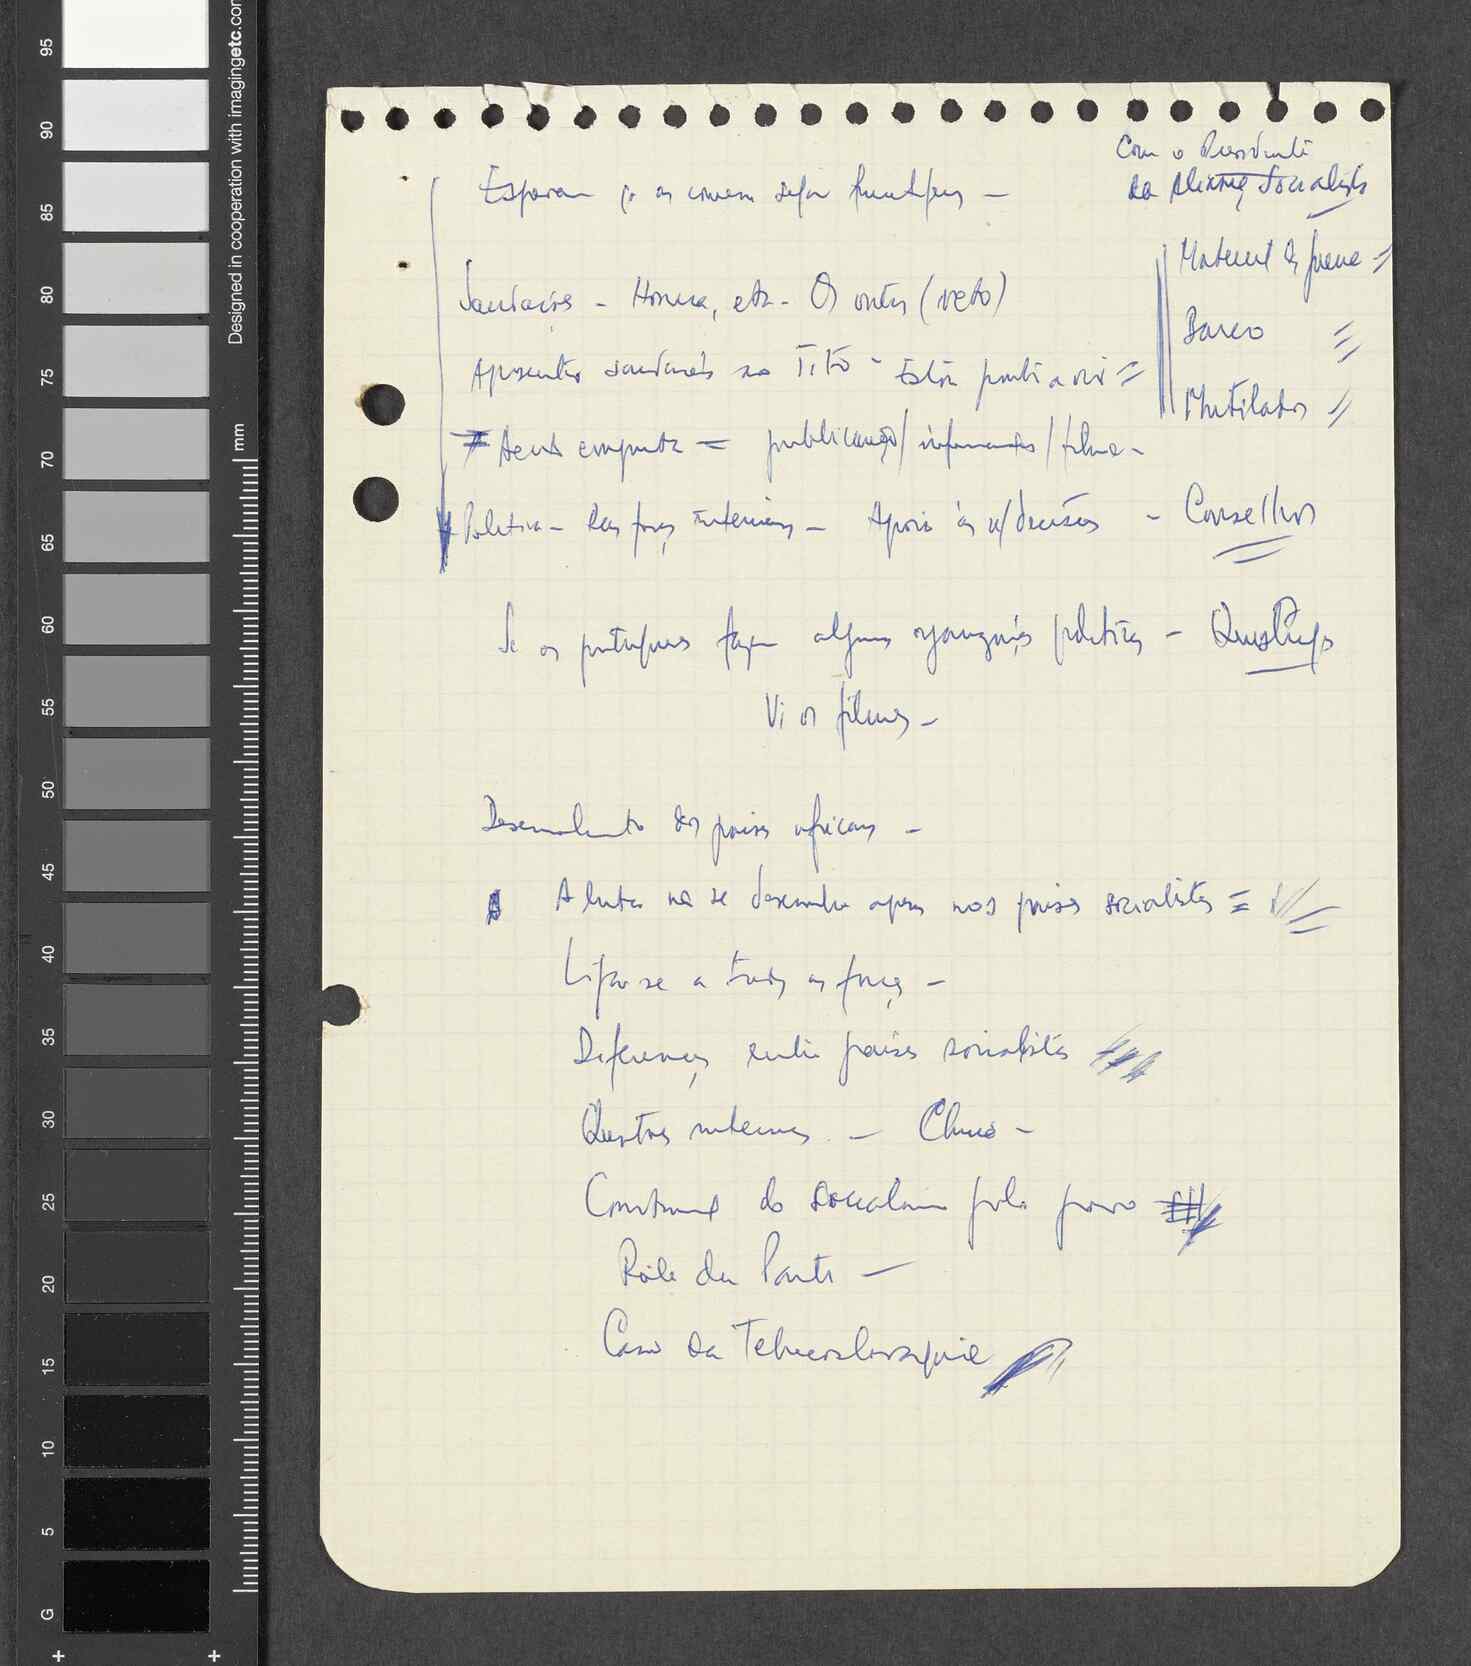 95
90
85
80
75
70
65
60
55
50
45
40
35
30
25
20
15
10
5
G
mm
Designed in cooperation with imagingetc.com
Com o Presidente
da Aliança Socialista
Esperam q as sejam
Material de guerra
Saudações - Honra, etc - Os outros (veto)
Barco
Apresentar saudações ao Tito - Está pronto a vir
Mutilados
publicações / informações / filme -
Política - Das forças interiores - Apoio às n/decisões - Conselhos
Se os portugueses fazem algumas organizações políticas - Questões
Vi os filmes -
Desenvolvimento dos países africanos -
A luta não se desenvolve apenas nos países socialistas =
Ligar-se a todas as forças -
Diferenças entre países socialistas
Questões internas - Chine -
Construção do socialismo pelo povo
Rôle du Parti -
Caso da Tchecoslovaquie